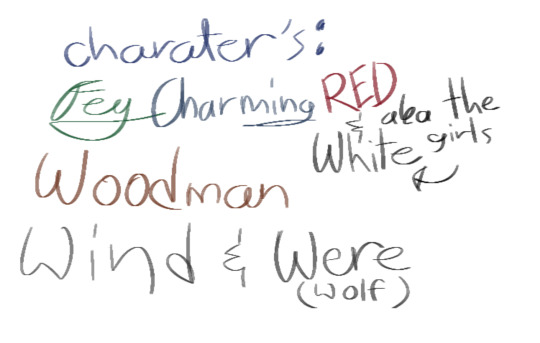 charater's:
Fey Charming RED
& aka the
White girls
Woodman
Wind & Were
(wolf)